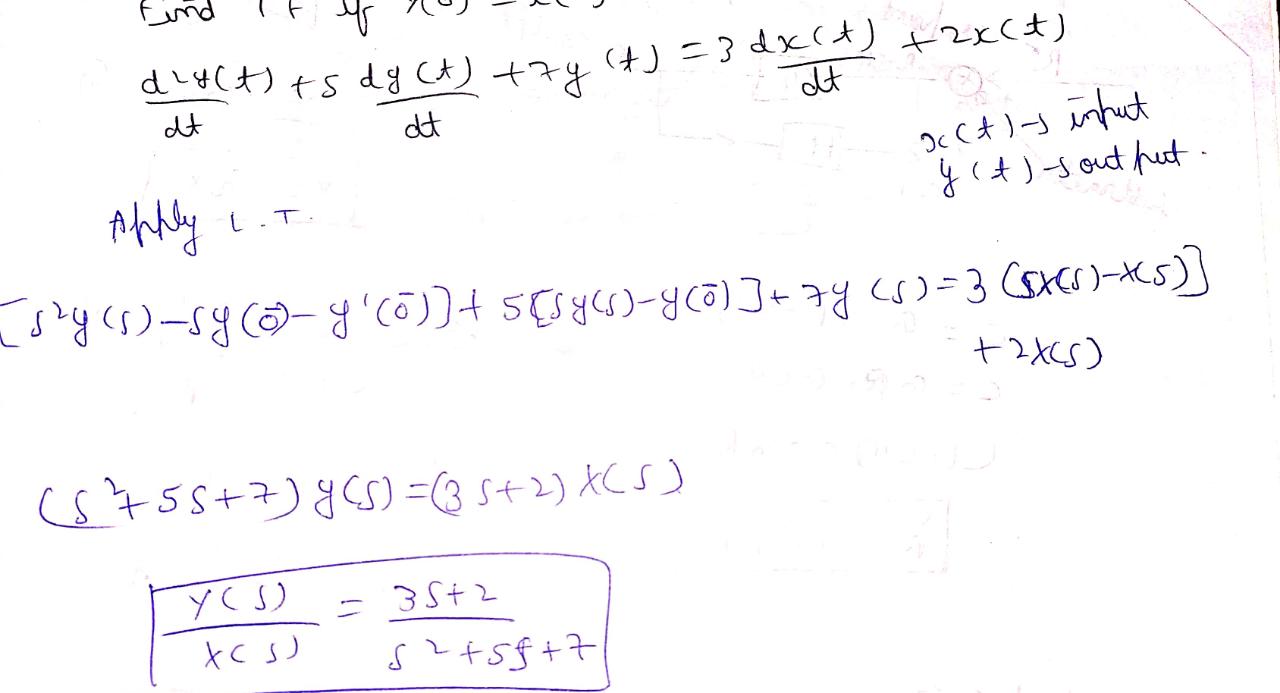 Find TF if
d²y(t)/dt + 5 dy(t)/dt + 7y(t) = 3 dx(t)/dt + 2x(t)
x(t) → input
y(t) → output.
Apply L.T.
[s²y(s) – sy(0̄) – y'(0̄)] + 5[sy(s) – y(0̄)] + 7y(s) = 3(sX(s) – X(s)]
+ 2X(s)
(s² + 5s + 7) y(s) = (3s + 2) X(s)
Y(s)/X(s) = 3s+2/s²+5s+7